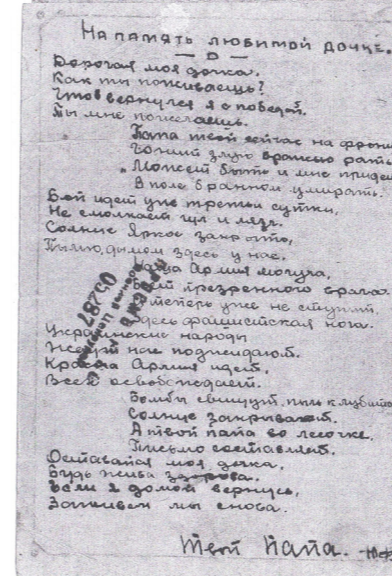 НА ПАМЯТЬ ЛЮБИМОЙ ДОЧКЕ.
Дорогая моя дочка,
Как ты поживаешь?
Чтоб вернулся я с победой,
Ты мне пожелаешь.
Папа твой сейчас на фрон
Гонит злую вражью рать.
Может быть и мне приде
В поле бранном умирать.
Бой идет уже третьи сутки,
Не смолкает гул и лязг.
Солнце Яркое закрыто,
Пылью, дымом здесь у нас.
Наша Армия могуча,
Бьет презренного врага.
теперь уже не ступит
Здесь фашистская нога.
Украинские народы
Ждут нас поджидают.
Красна Армия идет,
Всех освобождает.
Бомбы свищут, пыль клубит
Солнце закрывают.
А твой папа во лесочке,
Письмо составляет.
Оставайся моя дочка,
Будь жива здорова.
Если я домой вернусь,
Заживем мы снова.
Твой Папа.
05287